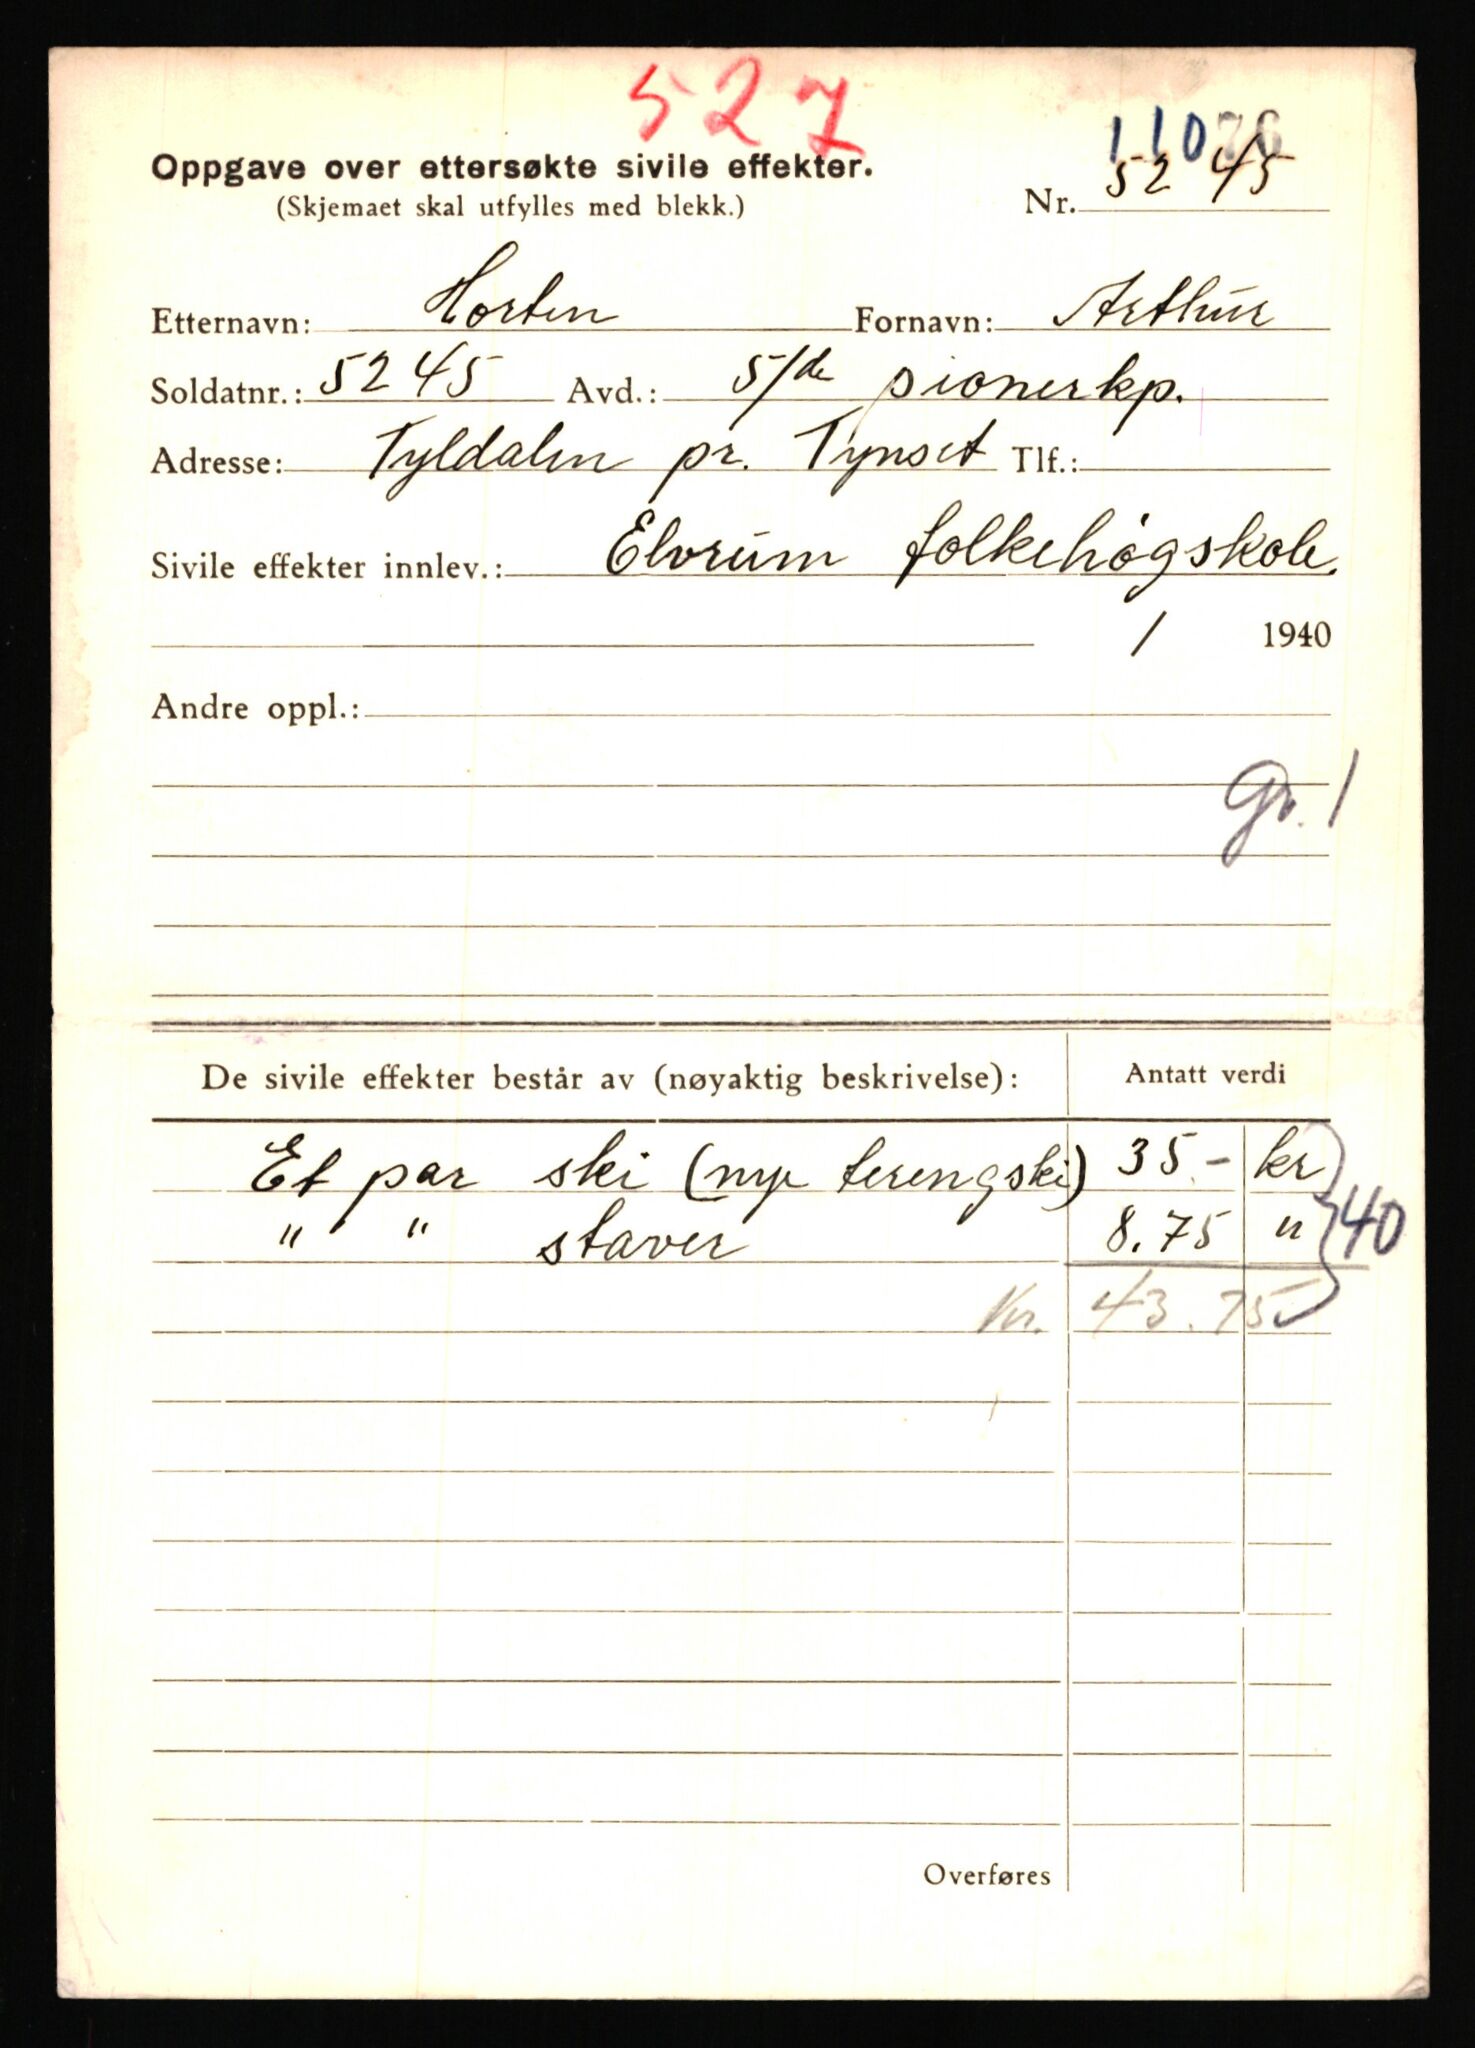 527
11076
Oppgave over ettersøkte sivile effekter.
(Skjemaet skal utfylles med blekk.)
Nr. 5245
Etternavn: Horten Fornavn: Arthur
Soldatnr.: 5245 Avd.: 5/de pionerkp.
Adresse: Tyldalen pr. Tynset Tlf.:
Sivile effekter innlev.: Elvrum folkehøgskole.
/ 1940
Andre oppl.:
Gr. 1
De sivile effekter består av (nøyaktig beskrivelse): Antatt verdi
Et par ski (nye terengski) 35.- kr
" " staver 8.75 "
40
Kr. 43.75
Overføres